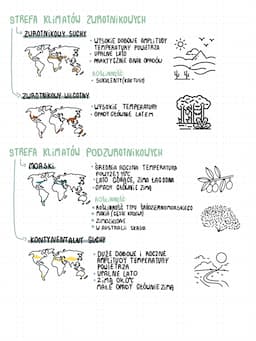 STREFA KLIMATÓW ZWROTNIKOWYCH
ZWROTNIKOWY SUCHY
- WYSOKIE DOBOWE AMPLITUDY
TEMPERATURY POWIETRZA
- UPALNE LATO
- PRAKTYCZNIE BRAK OPADÓW
ROŚLINNOŚĆ:
- SUKULENTY (KAKTUSY)
ZWROTNIKOWY WILGOTNY
- WYSOKIE TEMPERATURY
- OPADY GŁÓWNIE LATEM
STREFA KLIMATÓW PODZWROTNIKOWYCH
MORSKI
- ŚREDNIA ROCZNA TEMPERATURA
POWYŻEJ 10°C
- LATO GORĄCE, ZIMA ŁAGODNA
- OPADY GŁÓWNIE ZIMĄ
ROŚLINNOŚĆ
- ROŚLINNOŚĆ TYPU ŚRÓDZIEMNOMORSKIEGO
- MAKIA (GĘSTE KRZEWY)
- ZIMOZIELONE
- W AUSTRALII SKRUB
KONTYNENTALNY SUCHY
- DUŻE DOBOWE I ROCZNE
AMPLITUDY TEMPERATURY
POWIETRZA
- UPALNE LATO
- ZIMĄ OK. 0°C
- MAŁE OPADY GŁÓWNIE ZIMĄ